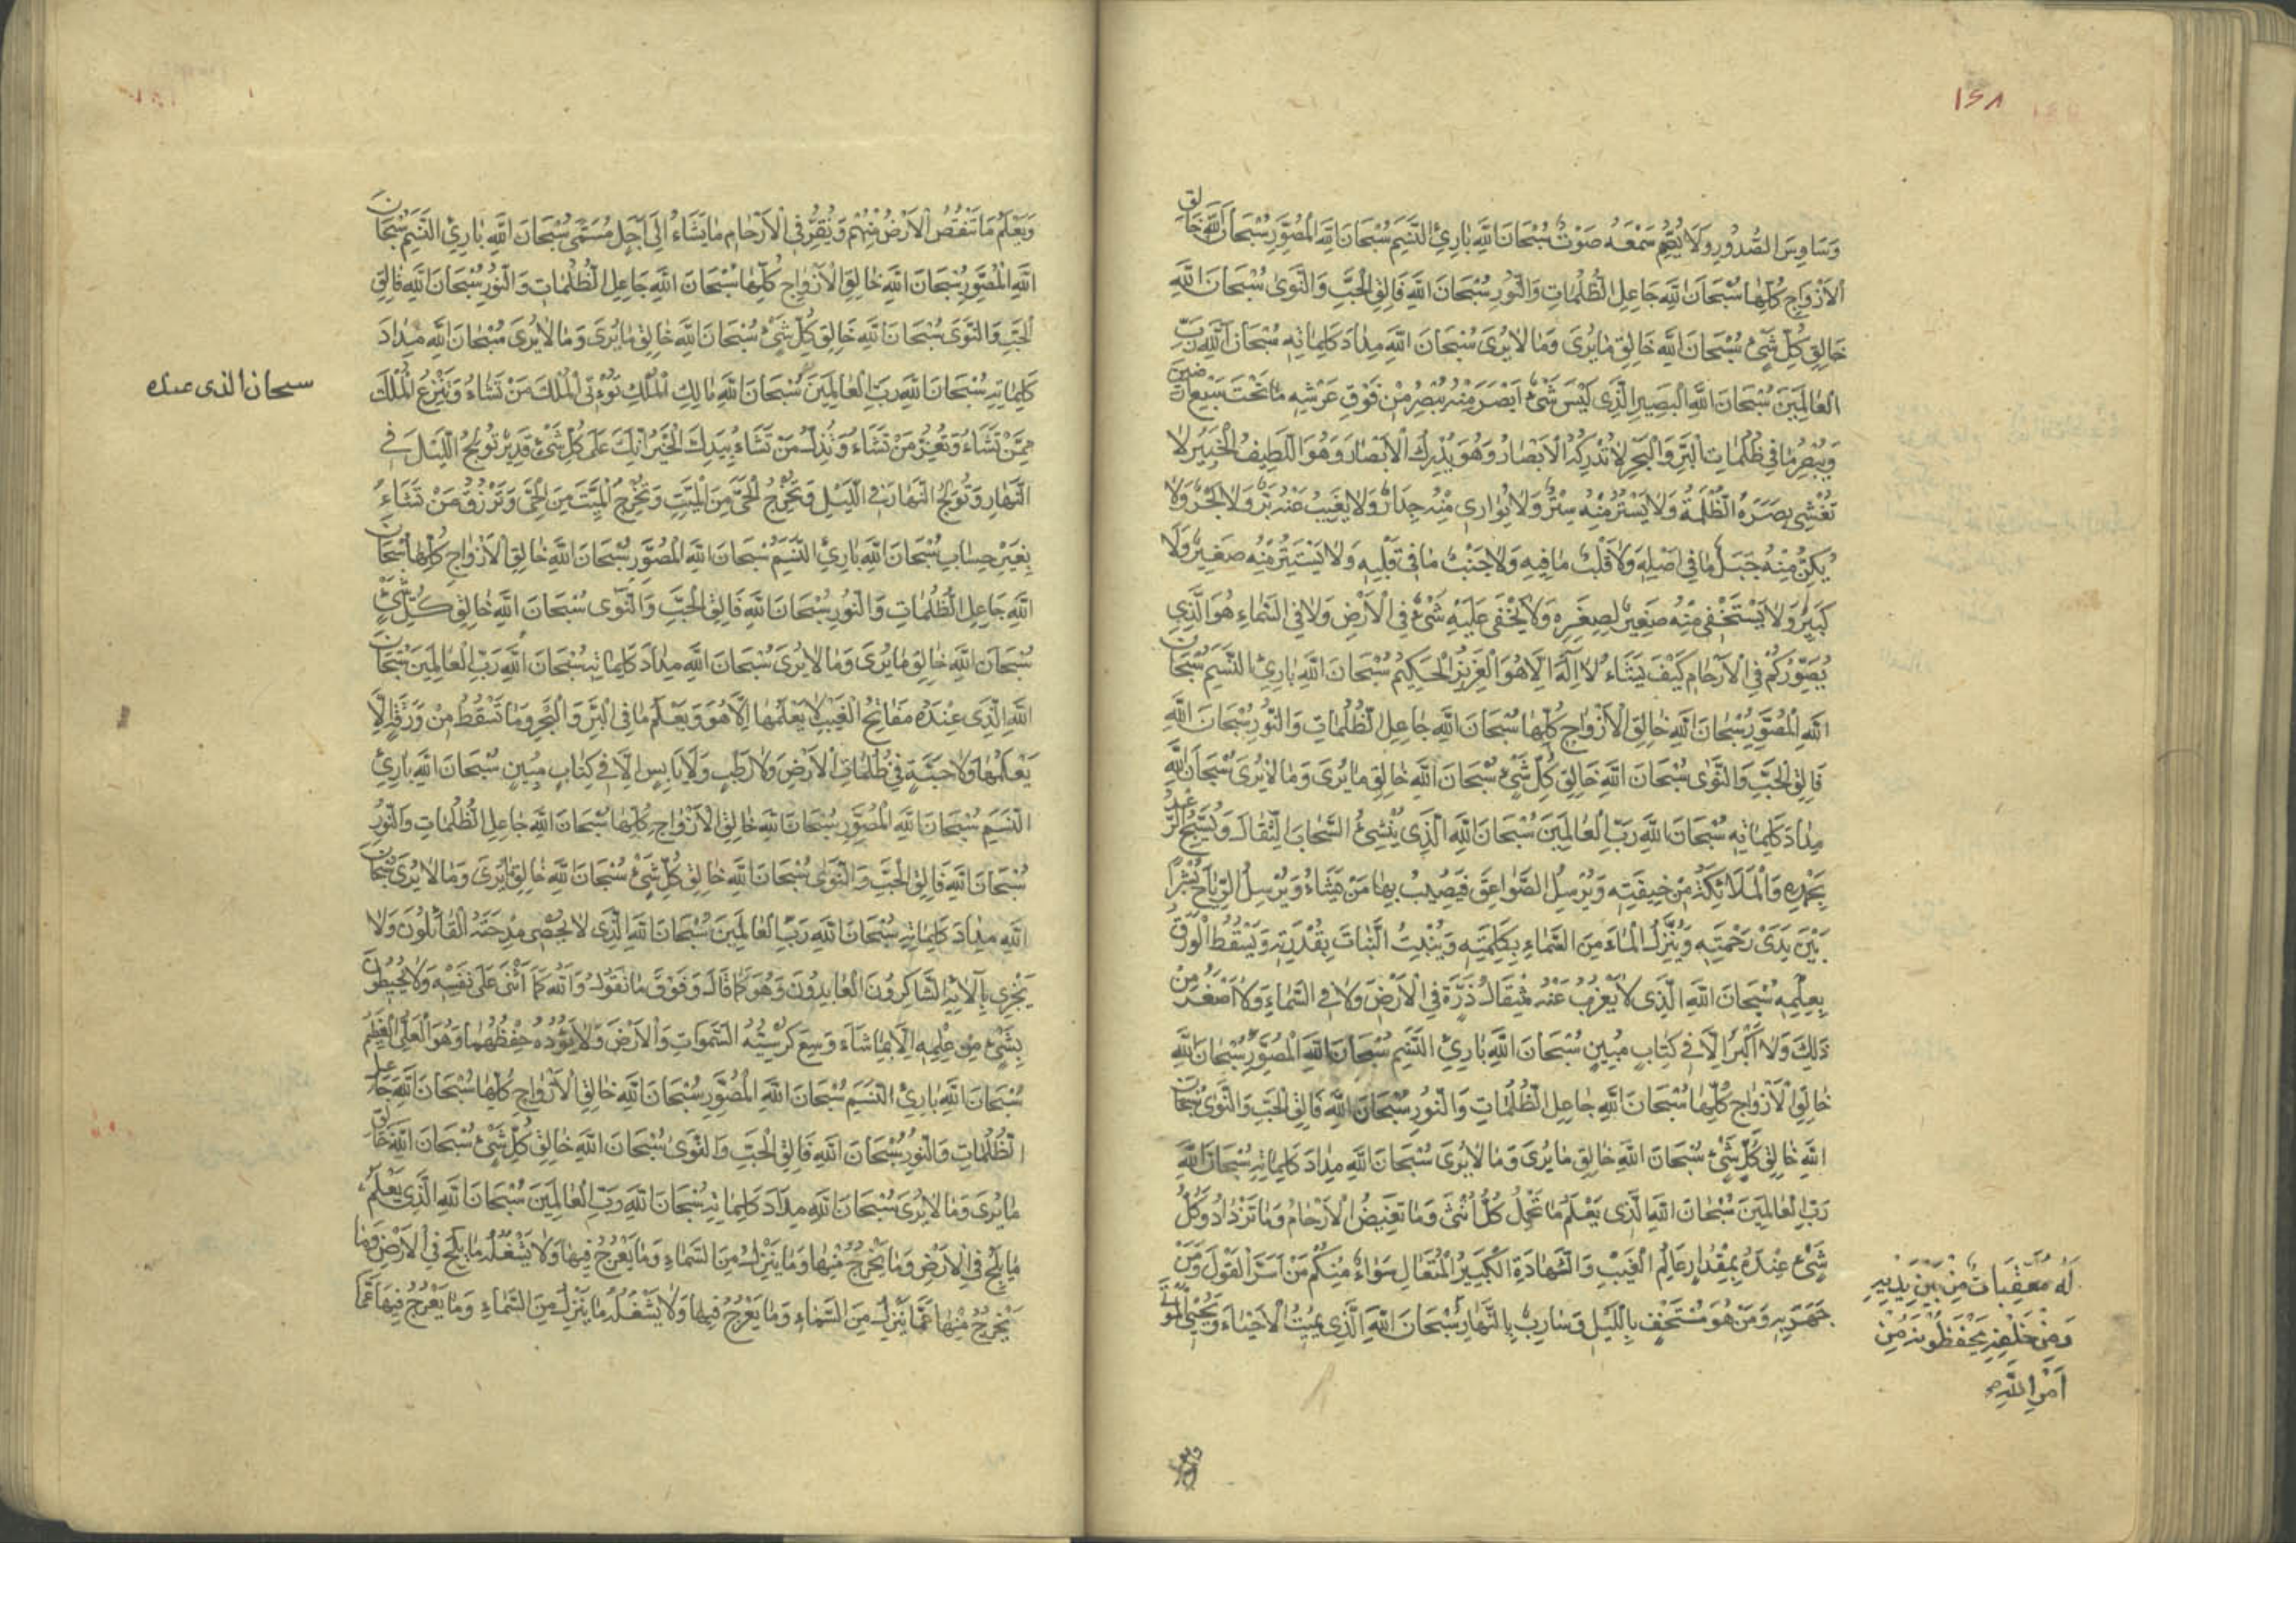 ١٤٨
وَسَاوِسَ الصُّدُورِ وَلَا يُصِمُّ سَمْعَهُ صَوْتٌ سُبْحَانَ اللَّهِ بَارِئِ النَّسَمِ سُبْحَانَ اللَّهِ الْمُصَوِّرِ سُبْحَانَ اللَّهِ خَالِقِ
الْأَزْوَاجِ كُلِّهَا سُبْحَانَ اللَّهِ جَاعِلِ الظُّلُمَاتِ وَالنُّورِ سُبْحَانَ اللَّهِ فَالِقِ الْحَبِّ وَالنَّوَى سُبْحَانَ اللَّهِ
خَالِقِ كُلِّ شَيْءٍ سُبْحَانَ اللَّهِ خَالِقِ مَا يُرَى وَمَا لَا يُرَى سُبْحَانَ اللَّهِ مِدَادَ كَلِمَاتِهِ سُبْحَانَ اللَّهِ رَبِّ
الْعَالَمِينَ سُبْحَانَ اللَّهِ الْبَصِيرِ الَّذِي لَيْسَ شَيْءٌ أَبْصَرَ مِنْهُ يُبْصِرُ مِنْ فَوْقِ عَرْشِهِ مَا تَحْتَ سَبْعِ أَرَضِينَ
وَيُبْصِرُ مَا فِي ظُلُمَاتِ الْبَرِّ وَالْبَحْرِ لَا تُدْرِكُهُ الْأَبْصَارُ وَهُوَ يُدْرِكُ الْأَبْصَارَ وَهُوَ اللَّطِيفُ الْخَبِيرُ لَا
تُغْشِي بَصَرَهُ الظُّلْمَةُ وَلَا يَسْتُرُ مِنْهُ سِتْرٌ وَلَا يُوَارِي مِنْهُ جِدَارٌ وَلَا يَغِيبُ عَنْهُ بَرٌّ وَلَا بَحْرٌ وَلَا
يُكِنُّ مِنْهُ جَبَلٌ مَا فِي أَصْلِهِ وَلَا قَلْبٌ مَا فِيهِ وَلَا جَنْبٌ مَا فِي قَلْبِهِ وَلَا يَسْتَتِرُ مِنْهُ صَغِيرٌ وَلَا
كَبِيرٌ وَلَا يَسْتَخْفِي مِنْهُ صَغِيرٌ لِصِغَرِهِ وَلَا يَخْفَى عَلَيْهِ شَيْءٌ فِي الْأَرْضِ وَلَا فِي السَّمَاءِ هُوَ الَّذِي
يُصَوِّرُكُمْ فِي الْأَرْحَامِ كَيْفَ يَشَاءُ لَا إِلَهَ إِلَّا هُوَ الْعَزِيزُ الْحَكِيمُ سُبْحَانَ اللَّهِ بَارِئِ النَّسَمِ سُبْحَانَ
اللَّهِ الْمُصَوِّرِ سُبْحَانَ اللَّهِ خَالِقِ الْأَزْوَاجِ كُلِّهَا سُبْحَانَ اللَّهِ جَاعِلِ الظُّلُمَاتِ وَالنُّورِ سُبْحَانَ اللَّهِ
فَالِقِ الْحَبِّ وَالنَّوَى سُبْحَانَ اللَّهِ خَالِقِ كُلِّ شَيْءٍ سُبْحَانَ اللَّهِ خَالِقِ مَا يُرَى وَمَا لَا يُرَى سُبْحَانَ اللَّهِ
مِدَادَ كَلِمَاتِهِ سُبْحَانَ اللَّهِ رَبِّ الْعَالَمِينَ سُبْحَانَ اللَّهِ الَّذِي يُنْشِئُ السَّحَابَ الثِّقَالَ وَيُسَبِّحُ الرَّعْدُ
بِحَمْدِهِ وَالْمَلَائِكَةُ مِنْ خِيفَتِهِ وَيُرْسِلُ الصَّوَاعِقَ فَيُصِيبُ بِهَا مَنْ يَشَاءُ وَيُرْسِلُ الرِّيَاحَ بُشْرًا
بَيْنَ يَدَيْ رَحْمَتِهِ وَيُنَزِّلُ الْمَاءَ مِنَ السَّمَاءِ بِكَلِمَتِهِ وَيُنْبِتُ النَّبَاتَ بِقُدْرَتِهِ وَيَسْقُطُ الْوَرَقُ
بِعِلْمِهِ سُبْحَانَ اللَّهِ الَّذِي لَا يَعْزُبُ عَنْهُ مِثْقَالُ ذَرَّةٍ فِي الْأَرْضِ وَلَا فِي السَّمَاءِ وَلَا أَصْغَرُ مِنْ
ذَلِكَ وَلَا أَكْبَرُ إِلَّا فِي كِتَابٍ مُبِينٍ سُبْحَانَ اللَّهِ بَارِئِ النَّسَمِ سُبْحَانَ اللَّهِ الْمُصَوِّرِ سُبْحَانَ اللَّهِ
خَالِقِ الْأَزْوَاجِ كُلِّهَا سُبْحَانَ اللَّهِ جَاعِلِ الظُّلُمَاتِ وَالنُّورِ سُبْحَانَ اللَّهِ فَالِقِ الْحَبِّ وَالنَّوَى سُبْحَانَ
اللَّهِ خَالِقِ كُلِّ شَيْءٍ سُبْحَانَ اللَّهِ خَالِقِ مَا يُرَى وَمَا لَا يُرَى سُبْحَانَ اللَّهِ مِدَادَ كَلِمَاتِهِ سُبْحَانَ اللَّهِ
رَبِّ الْعَالَمِينَ سُبْحَانَ اللَّهِ الَّذِي يَعْلَمُ مَا تَحْمِلُ كُلُّ أُنْثَى وَمَا تَغِيضُ الْأَرْحَامُ وَمَا تَزْدَادُ وَكُلُّ
شَيْءٍ عِنْدَهُ بِمِقْدَارٍ عَالِمِ الْغَيْبِ وَالشَّهَادَةِ الْكَبِيرُ الْمُتَعَالِ سَوَاءٌ مِنْكُمْ مَنْ أَسَرَّ الْقَوْلَ وَمَنْ
جَهَرَ بِهِ وَمَنْ هُوَ مُسْتَخْفٍ بِاللَّيْلِ وَسَارِبٌ بِالنَّهَارِ سُبْحَانَ اللَّهِ الَّذِي يُمِيتُ الْأَحْيَاءَ وَيُحْيِي الْمَوْتَى
لَهُ مُعَقِّبَاتٌ مِنْ بَيْنِ يَدَيْهِ
وَمِنْ خَلْفِهِ يَحْفَظُونَهُ مِنْ
أَمْرِ اللَّهِ
وَيَعْلَمُ مَا تَنْقُصُ الْأَرْضُ مِنْهُمْ وَيُقِرُّ فِي الْأَرْحَامِ مَا يَشَاءُ إِلَى أَجَلٍ مُسَمًّى سُبْحَانَ اللَّهِ بَارِئِ النَّسَمِ سُبْحَانَ
اللَّهِ الْمُصَوِّرِ سُبْحَانَ اللَّهِ خَالِقِ الْأَزْوَاجِ كُلِّهَا سُبْحَانَ اللَّهِ جَاعِلِ الظُّلُمَاتِ وَالنُّورِ سُبْحَانَ اللَّهِ فَالِقِ
الْحَبِّ وَالنَّوَى سُبْحَانَ اللَّهِ خَالِقِ كُلِّ شَيْءٍ سُبْحَانَ اللَّهِ خَالِقِ مَا يُرَى وَمَا لَا يُرَى سُبْحَانَ اللَّهِ مِدَادَ
كَلِمَاتِهِ سُبْحَانَ اللَّهِ رَبِّ الْعَالَمِينَ سُبْحَانَ اللَّهِ مَالِكِ الْمُلْكِ تُؤْتِي الْمُلْكَ مَنْ تَشَاءُ وَتَنْزِعُ الْمُلْكَ
مِمَّنْ تَشَاءُ وَتُعِزُّ مَنْ تَشَاءُ وَتُذِلُّ مَنْ تَشَاءُ بِيَدِكَ الْخَيْرُ إِنَّكَ عَلَى كُلِّ شَيْءٍ قَدِيرٌ تُولِجُ اللَّيْلَ فِي
النَّهَارِ وَتُولِجُ النَّهَارَ فِي اللَّيْلِ وَتُخْرِجُ الْحَيَّ مِنَ الْمَيِّتِ وَتُخْرِجُ الْمَيِّتَ مِنَ الْحَيِّ وَتَرْزُقُ مَنْ تَشَاءُ
بِغَيْرِ حِسَابٍ سُبْحَانَ اللَّهِ بَارِئِ النَّسَمِ سُبْحَانَ اللَّهِ الْمُصَوِّرِ سُبْحَانَ اللَّهِ خَالِقِ الْأَزْوَاجِ كُلِّهَا سُبْحَانَ
اللَّهِ جَاعِلِ الظُّلُمَاتِ وَالنُّورِ سُبْحَانَ اللَّهِ فَالِقِ الْحَبِّ وَالنَّوَى سُبْحَانَ اللَّهِ خَالِقِ كُلِّ شَيْءٍ
سُبْحَانَ اللَّهِ خَالِقِ مَا يُرَى وَمَا لَا يُرَى سُبْحَانَ اللَّهِ مِدَادَ كَلِمَاتِهِ سُبْحَانَ اللَّهِ رَبِّ الْعَالَمِينَ سُبْحَانَ
اللَّهِ الَّذِي عِنْدَهُ مَفَاتِحُ الْغَيْبِ لَا يَعْلَمُهَا إِلَّا هُوَ وَيَعْلَمُ مَا فِي الْبَرِّ وَالْبَحْرِ وَمَا تَسْقُطُ مِنْ وَرَقَةٍ إِلَّا
يَعْلَمُهَا وَلَا حَبَّةٍ فِي ظُلُمَاتِ الْأَرْضِ وَلَا رَطْبٍ وَلَا يَابِسٍ إِلَّا فِي كِتَابٍ مُبِينٍ سُبْحَانَ اللَّهِ بَارِئِ
النَّسَمِ سُبْحَانَ اللَّهِ الْمُصَوِّرِ سُبْحَانَ اللَّهِ خَالِقِ الْأَزْوَاجِ كُلِّهَا سُبْحَانَ اللَّهِ جَاعِلِ الظُّلُمَاتِ وَالنُّورِ
سُبْحَانَ اللَّهِ فَالِقِ الْحَبِّ وَالنَّوَى سُبْحَانَ اللَّهِ خَالِقِ كُلِّ شَيْءٍ سُبْحَانَ اللَّهِ خَالِقِ مَا يُرَى وَمَا لَا يُرَى سُبْحَانَ
اللَّهِ مِدَادَ كَلِمَاتِهِ سُبْحَانَ اللَّهِ رَبِّ الْعَالَمِينَ سُبْحَانَ اللَّهِ الَّذِي لَا يُحْصِي مِدْحَتَهُ الْقَائِلُونَ وَلَا
يَجْزِي بِآلَائِهِ الشَّاكِرُونَ الْعَابِدُونَ وَهُوَ كَمَا قَالَ وَفَوْقَ مَا نَقُولُ وَاللَّهُ كَمَا أَثْنَى عَلَى نَفْسِهِ وَلَا يُحِيطُونَ
بِشَيْءٍ مِنْ عِلْمِهِ إِلَّا بِمَا شَاءَ وَسِعَ كُرْسِيُّهُ السَّمَوَاتِ وَالْأَرْضَ وَلَا يَئُودُهُ حِفْظُهُمَا وَهُوَ الْعَلِيُّ الْعَظِيمُ
سُبْحَانَ اللَّهِ بَارِئِ النَّسَمِ سُبْحَانَ اللَّهِ الْمُصَوِّرِ سُبْحَانَ اللَّهِ خَالِقِ الْأَزْوَاجِ كُلِّهَا سُبْحَانَ اللَّهِ جَاعِلِ
الظُّلُمَاتِ وَالنُّورِ سُبْحَانَ اللَّهِ فَالِقِ الْحَبِّ وَالنَّوَى سُبْحَانَ اللَّهِ خَالِقِ كُلِّ شَيْءٍ سُبْحَانَ اللَّهِ خَالِقِ
مَا يُرَى وَمَا لَا يُرَى سُبْحَانَ اللَّهِ مِدَادَ كَلِمَاتِهِ سُبْحَانَ اللَّهِ رَبِّ الْعَالَمِينَ سُبْحَانَ اللَّهِ الَّذِي يَعْلَمُ
مَا يَلِجُ فِي الْأَرْضِ وَمَا يَخْرُجُ مِنْهَا وَمَا يَنْزِلُ مِنَ السَّمَاءِ وَمَا يَعْرُجُ فِيهَا وَلَا يَشْغَلُهُ مَا يَلِجُ فِي الْأَرْضِ وَمَا
يَخْرُجُ مِنْهَا عَمَّا يَنْزِلُ مِنَ السَّمَاءِ وَمَا يَعْرُجُ فِيهَا وَلَا يَشْغَلُهُ مَا يَنْزِلُ مِنَ السَّمَاءِ وَمَا يَعْرُجُ فِيهَا عَمَّا
سبحان الذى عنده